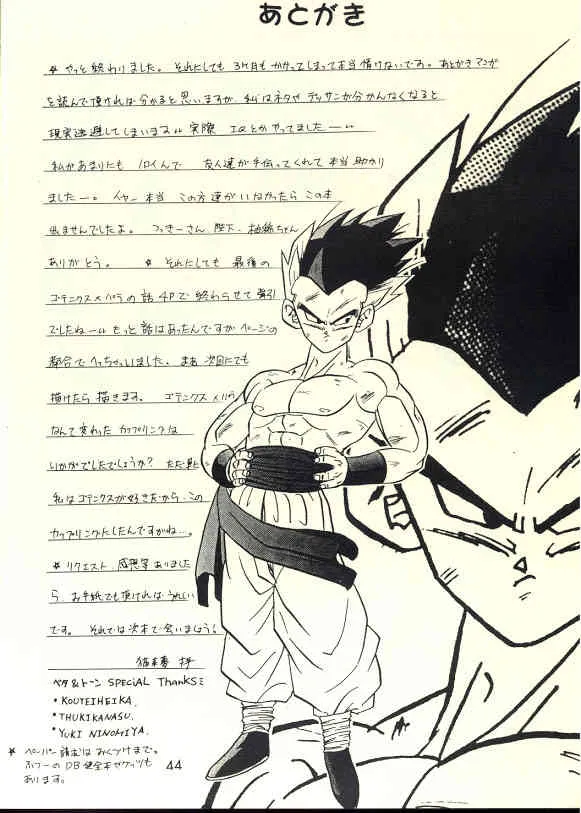 あとがき
* やっと終わりました。それにしても3ヶ月もかかってしまって本当情けないです。あとがきマンガ
を読んで頂ければ分かると思いますが、私はネタやデッサンが分かんなくなると
現実逃避してしまいます、、実際 エQとかやってましたー、、
私があまりにも ノロイんで 友人達が手伝ってくれて本当助かり
ましたー。イヤー本当 この方達がいなかったら この本
出ませんでしたよ。 つっきーさん 陛下、柚姫ちゃん
ありがとう。 * それにしても 最後の
ゴテンクス×パラの話4Pで終わらせて強引
でしたねー、、もっと話はあったんですがページの
都合でへっちゃいました。まぁ次回にでも
描けたら描きます。 ゴテンクス×パラ
なんて変わった カップリングは
いかがでしたでしょうか? ただ単に
私はゴテンクスが好きだから、この
カップリングにしたんですがね…。
* リクエスト、感想等ありました
ら お手紙でも頂ければうれしい
です。 それでは次本で会いましょう!
ベタ&トーン SPECiAL ThANKSミ
・KOUTEIHEIKA.
・THUKIKANASU.
・YUKI NINOMIYA.
* ペーパー請求はおくづけまで。
ふつーのDB健全本やグッツも
あります。
44